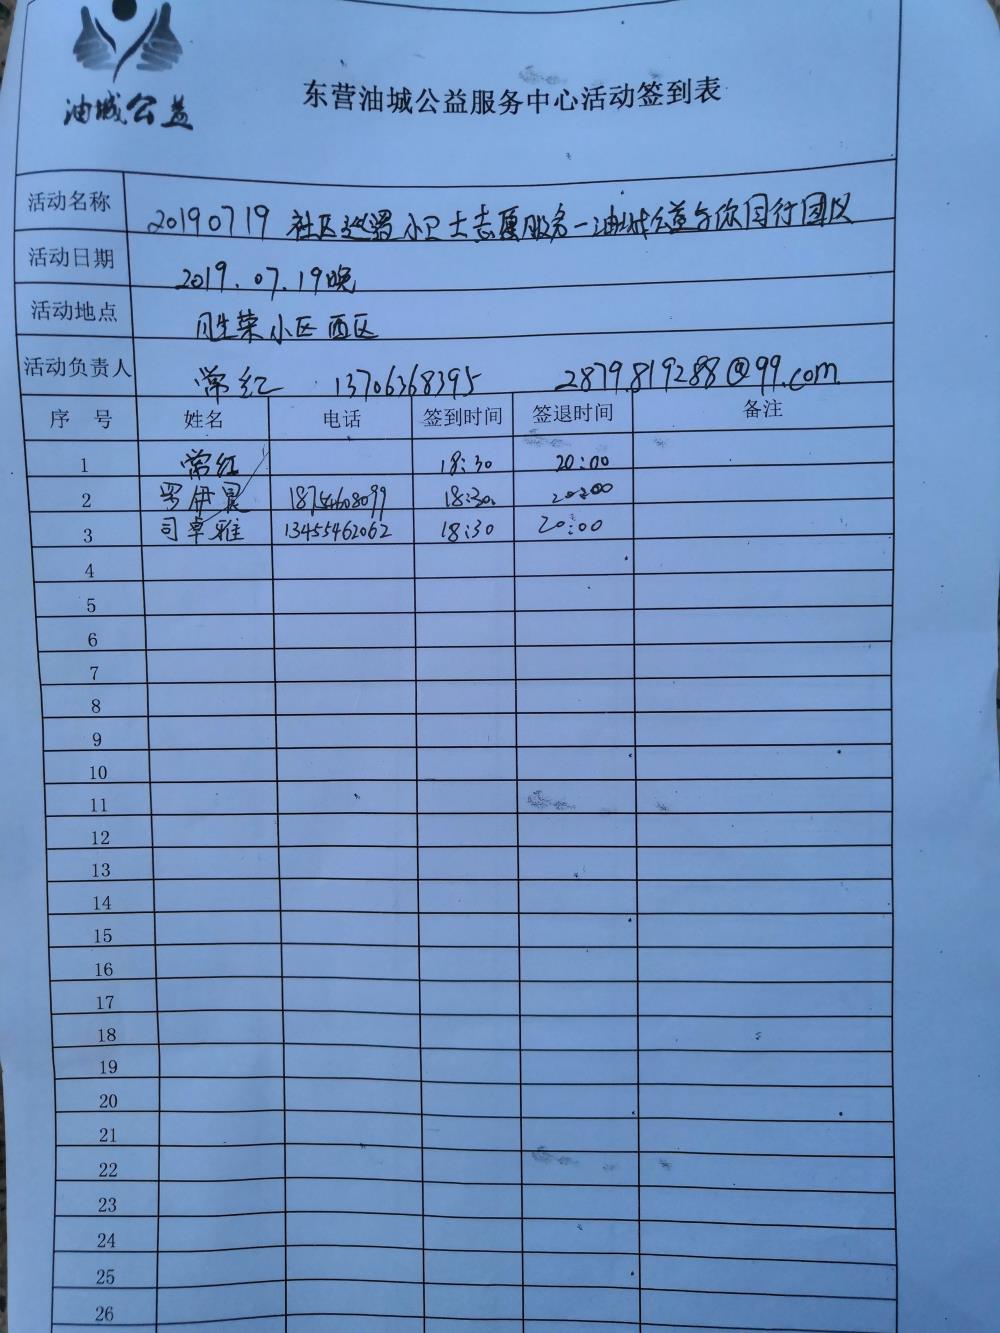 油城公益
东营油城公益服务中心活动签到表
活动名称 20190719 社区巡逻小卫士志愿服务-油城公益与你同行团队
活动日期 2019.07.19晚
活动地点 小区西区
活动负责人 常红 13706368395 2879819288@qq.com
序 号 姓名 电话 签到时间 签退时间 备注
1 常红 18:30 20:00
2 伊晨 18:30 20:00
3 司卓雅 13455462062 18:30 20:00
4
5
6
7
8
9
10
11
12
13
14
15
16
17
18
19
20
21
22
23
24
25
26